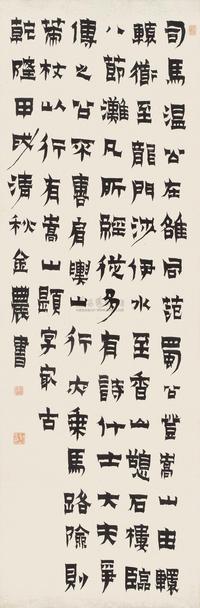 司馬溫公在雒同范蜀公登嵩山由轘
轅道至龍門涉伊水至香山憩石樓臨
八節灘凡所經從多有詩什士大夫爭
傳之公不喜肩輿山行亦乘馬路險則
策杖以行有嵩山題字家古
乾隆甲戌清秋金農書